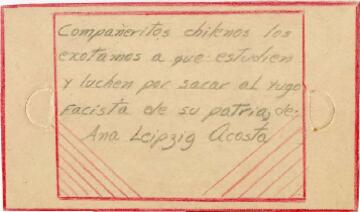 Compañeritos chilenos los
exotamos a que estudien
y luchen por sacar al yugo
facista de su patria, de:
Ana Leipzig Acosta